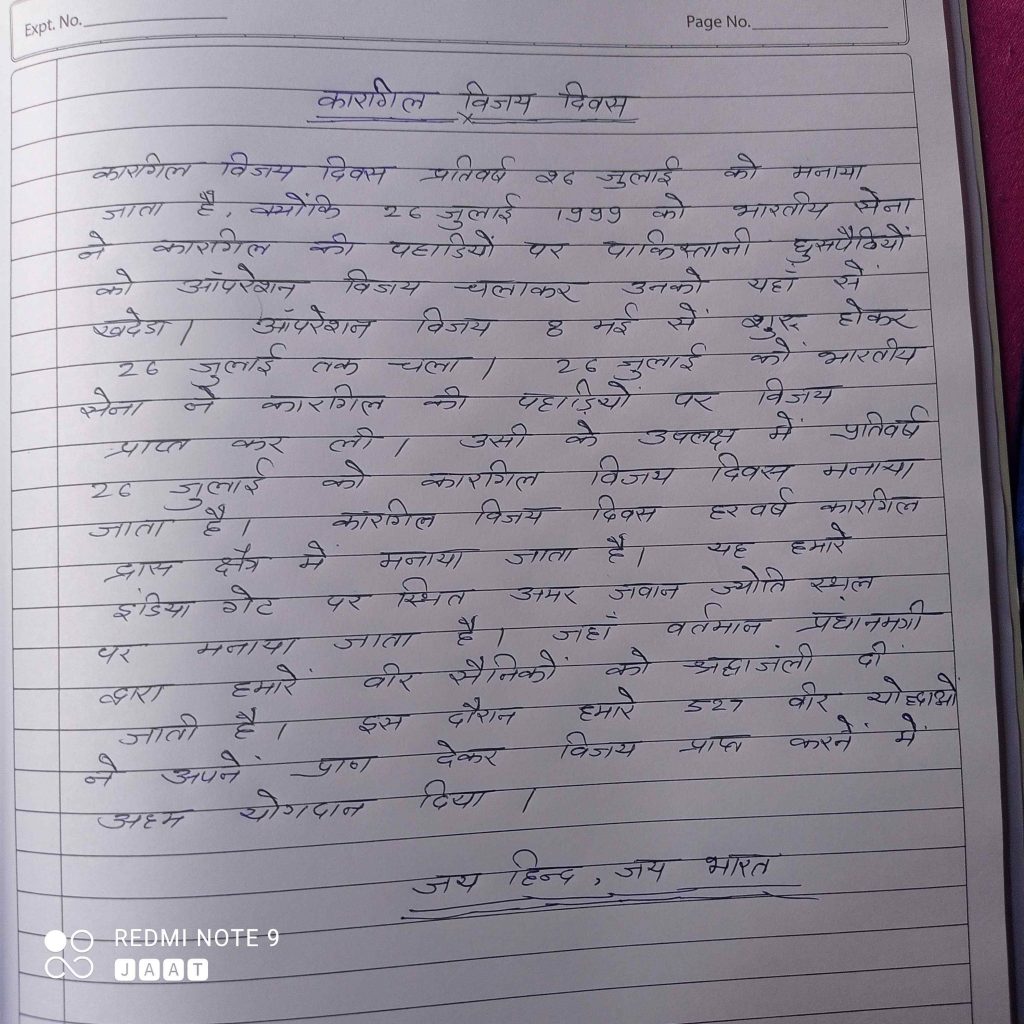 Expt. No.
Page No.
कारगिल विजय दिवस
कारगिल विजय दिवस प्रतिवर्ष 26 जुलाई को मनाया
जाता है, क्योंकि 26 जुलाई 1999 को भारतीय सेना
ने कारगिल की पहाडियों पर पाकिस्तानी घुसपैठियों
को ऑपरेशन विजय चलाकर उनको यहाँ सें
खदेडा। ऑपरेशन विजय 8 मई सें शुरू होकर
26 जुलाई तक चला। 26 जुलाई को भारतीय
सेना ने कारगिल की पहाड़ियों पर विजय
प्राप्त कर ली। उसी के उपलक्ष में प्रतिवर्ष
26 जुलाई को कारगिल विजय दिवस मनाया
जाता है। कारगिल विजय दिवस हर वर्ष कारगिल
द्रास क्षैत्र में मनाया जाता है। यह हमारे
इंडिया गेट पर स्थित अमर जवान ज्योति स्थल
पर मनाया जाता है। जहाँ वर्तमान प्रधानमंत्री
द्वारा हमारें वीर सैनिकों को श्रद्धाजंली दी
जाती है। इस दौरान हमारे 527 वीर योद्धाओं
ने अपनें प्राण देकर विजय प्राप्त करनें में
अहम योगदान दिया।
जय हिन्द, जय भारत
REDMI NOTE 9
JAAT